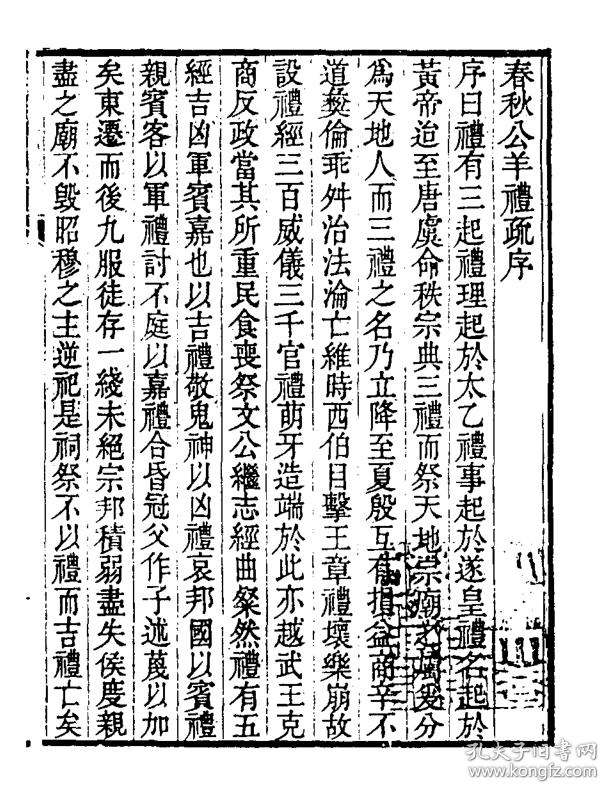 春秋公羊禮疏序
序曰禮有三起禮理起於太乙禮事起於遂皇禮名起於
黃帝迨至唐虞命秩宗典三禮而祭天地宗廟之禮爰分
爲天地人而三禮之名乃立降至夏殷互有損益商辛不
道彝倫乖舛治法淪亡維時西伯目擊王章禮壞樂崩故
設禮經三百威儀三千官禮萌牙造端於此亦越武王克
商反政當其所重民食喪祭文公繼志經曲粲然禮有五
經吉凶軍賓嘉也以吉禮敬鬼神以凶禮哀邦國以賓禮
親賓客以軍禮討不庭以嘉禮合昏冠父作子述蔑以加
矣東遷而後九服徒存一綫未絕宗邦積弱盡失侯度親
盡之廟不毀昭穆之主逆祀是祠祭不以禮而吉禮亡矣
孔夫子旧书网
www.kongfz.com